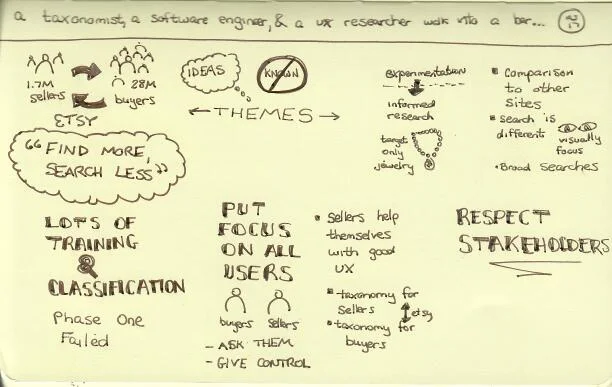 a taxonomist, a software engineer, & a ux researcher walk into a bar...
1.7M
sellers
28M
buyers
ETSY
IDEAS
KNOWN
THEMES
"FIND MORE,
SEARCH LESS"
experimentation
informed
research
target
only
jewelry
Comparison
to other
Sites
search is
different
visually
focus
Broad searches
LOTS OF
TRAINING
&
CLASSIFICATION
Phase One
Failed
PUT
FOCUS
ON ALL
USERS
buyers sellers
- ASK THEM
- GIVE CONTROL
sellers help
themselves
with good
UX
taxonomy for
sellers
etsy
taxonomy for
buyers
RESPECT
STAKEHOLDERS